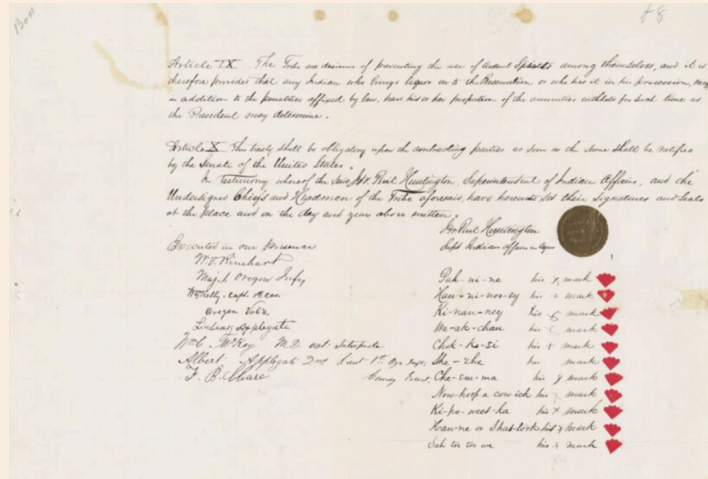 Article IX The Tribe are desirous of preventing the use of ardent Spirits among themselves, and it is
therefore provided that any Indian who brings liquor on to the Reservation or who has it in his possession, may
in addition to the penalties affixed by law, have his or her proportion of the annuities withheld for such time as
the President may determine.
Article X This treaty shall be obligatory upon the contracting parties as soon as the same shall be ratified
by the Senate of the United States.
In Testimony whereof the said J. W. Perit Huntington, Superintendent of Indian Affairs, and the
Undersigned Chiefs and Headmen of the Tribe aforesaid, have hereunto set their signatures and seals
at the place and on the day and year above written.
J. W. Perit Huntington
Supt Indian Affairs in Ogn
Executed in our Presence
W. V. Rinehart
Maj. 1 Oregon Infy
Wm Kelly, capt.
Oregon Vols,
Lindsay Applegate
Wm C. McKay M.D. act. Interpreter
Albert Applegate 2nd Lieut 1st Ogn Infy,
Pah-ni-ne his x mark
Hau-ni-noo-ey his x mark
Ki-nau-ney his x mark
We-ak-chau his x mark
Chok-ko-si his x mark
She-zhe his mark
Che-em-ma his x mark
Now-hoop-a-cow-ich his x mark
Ki-po-weet-ka his x mark
Hau-ne or Shas-took his x mark
Sah too too we his x mark